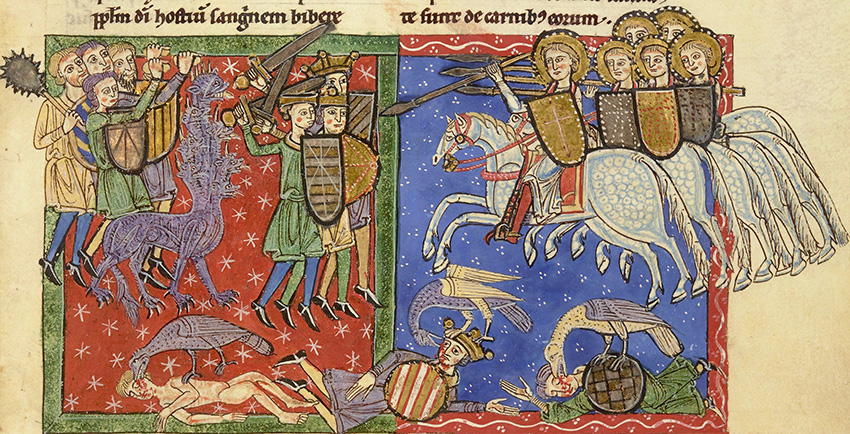 pplm̄ dī hostiū sang̅nem bibere
te sunt de carnibꝰ eorum.